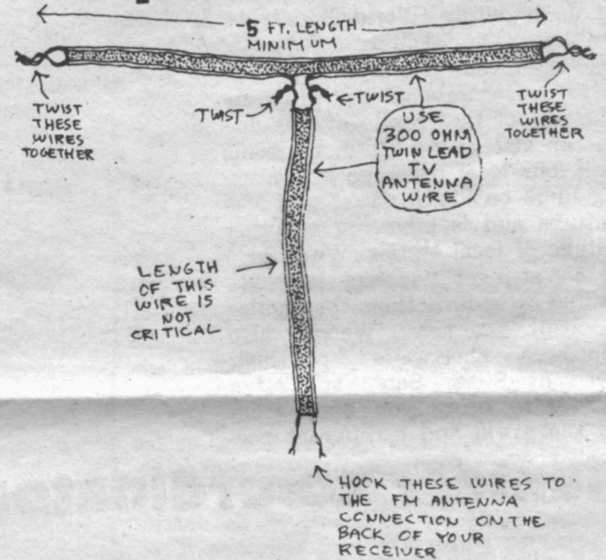 5 FT. LENGTH
MINIMUM
TWIST
THESE
WIRES
TOGETHER
TWIST
TWIST
TWIST
THESE
WIRES
TOGETHER
USE
300 OHM
TWIN LEAD
TV
ANTENNA
WIRE
LENGTH
OF THIS
WIRE IS
NOT
CRITICAL
HOOK THESE WIRES TO
THE FM ANTENNA
CONNECTION ON THE
BACK OF YOUR
RECEIVER